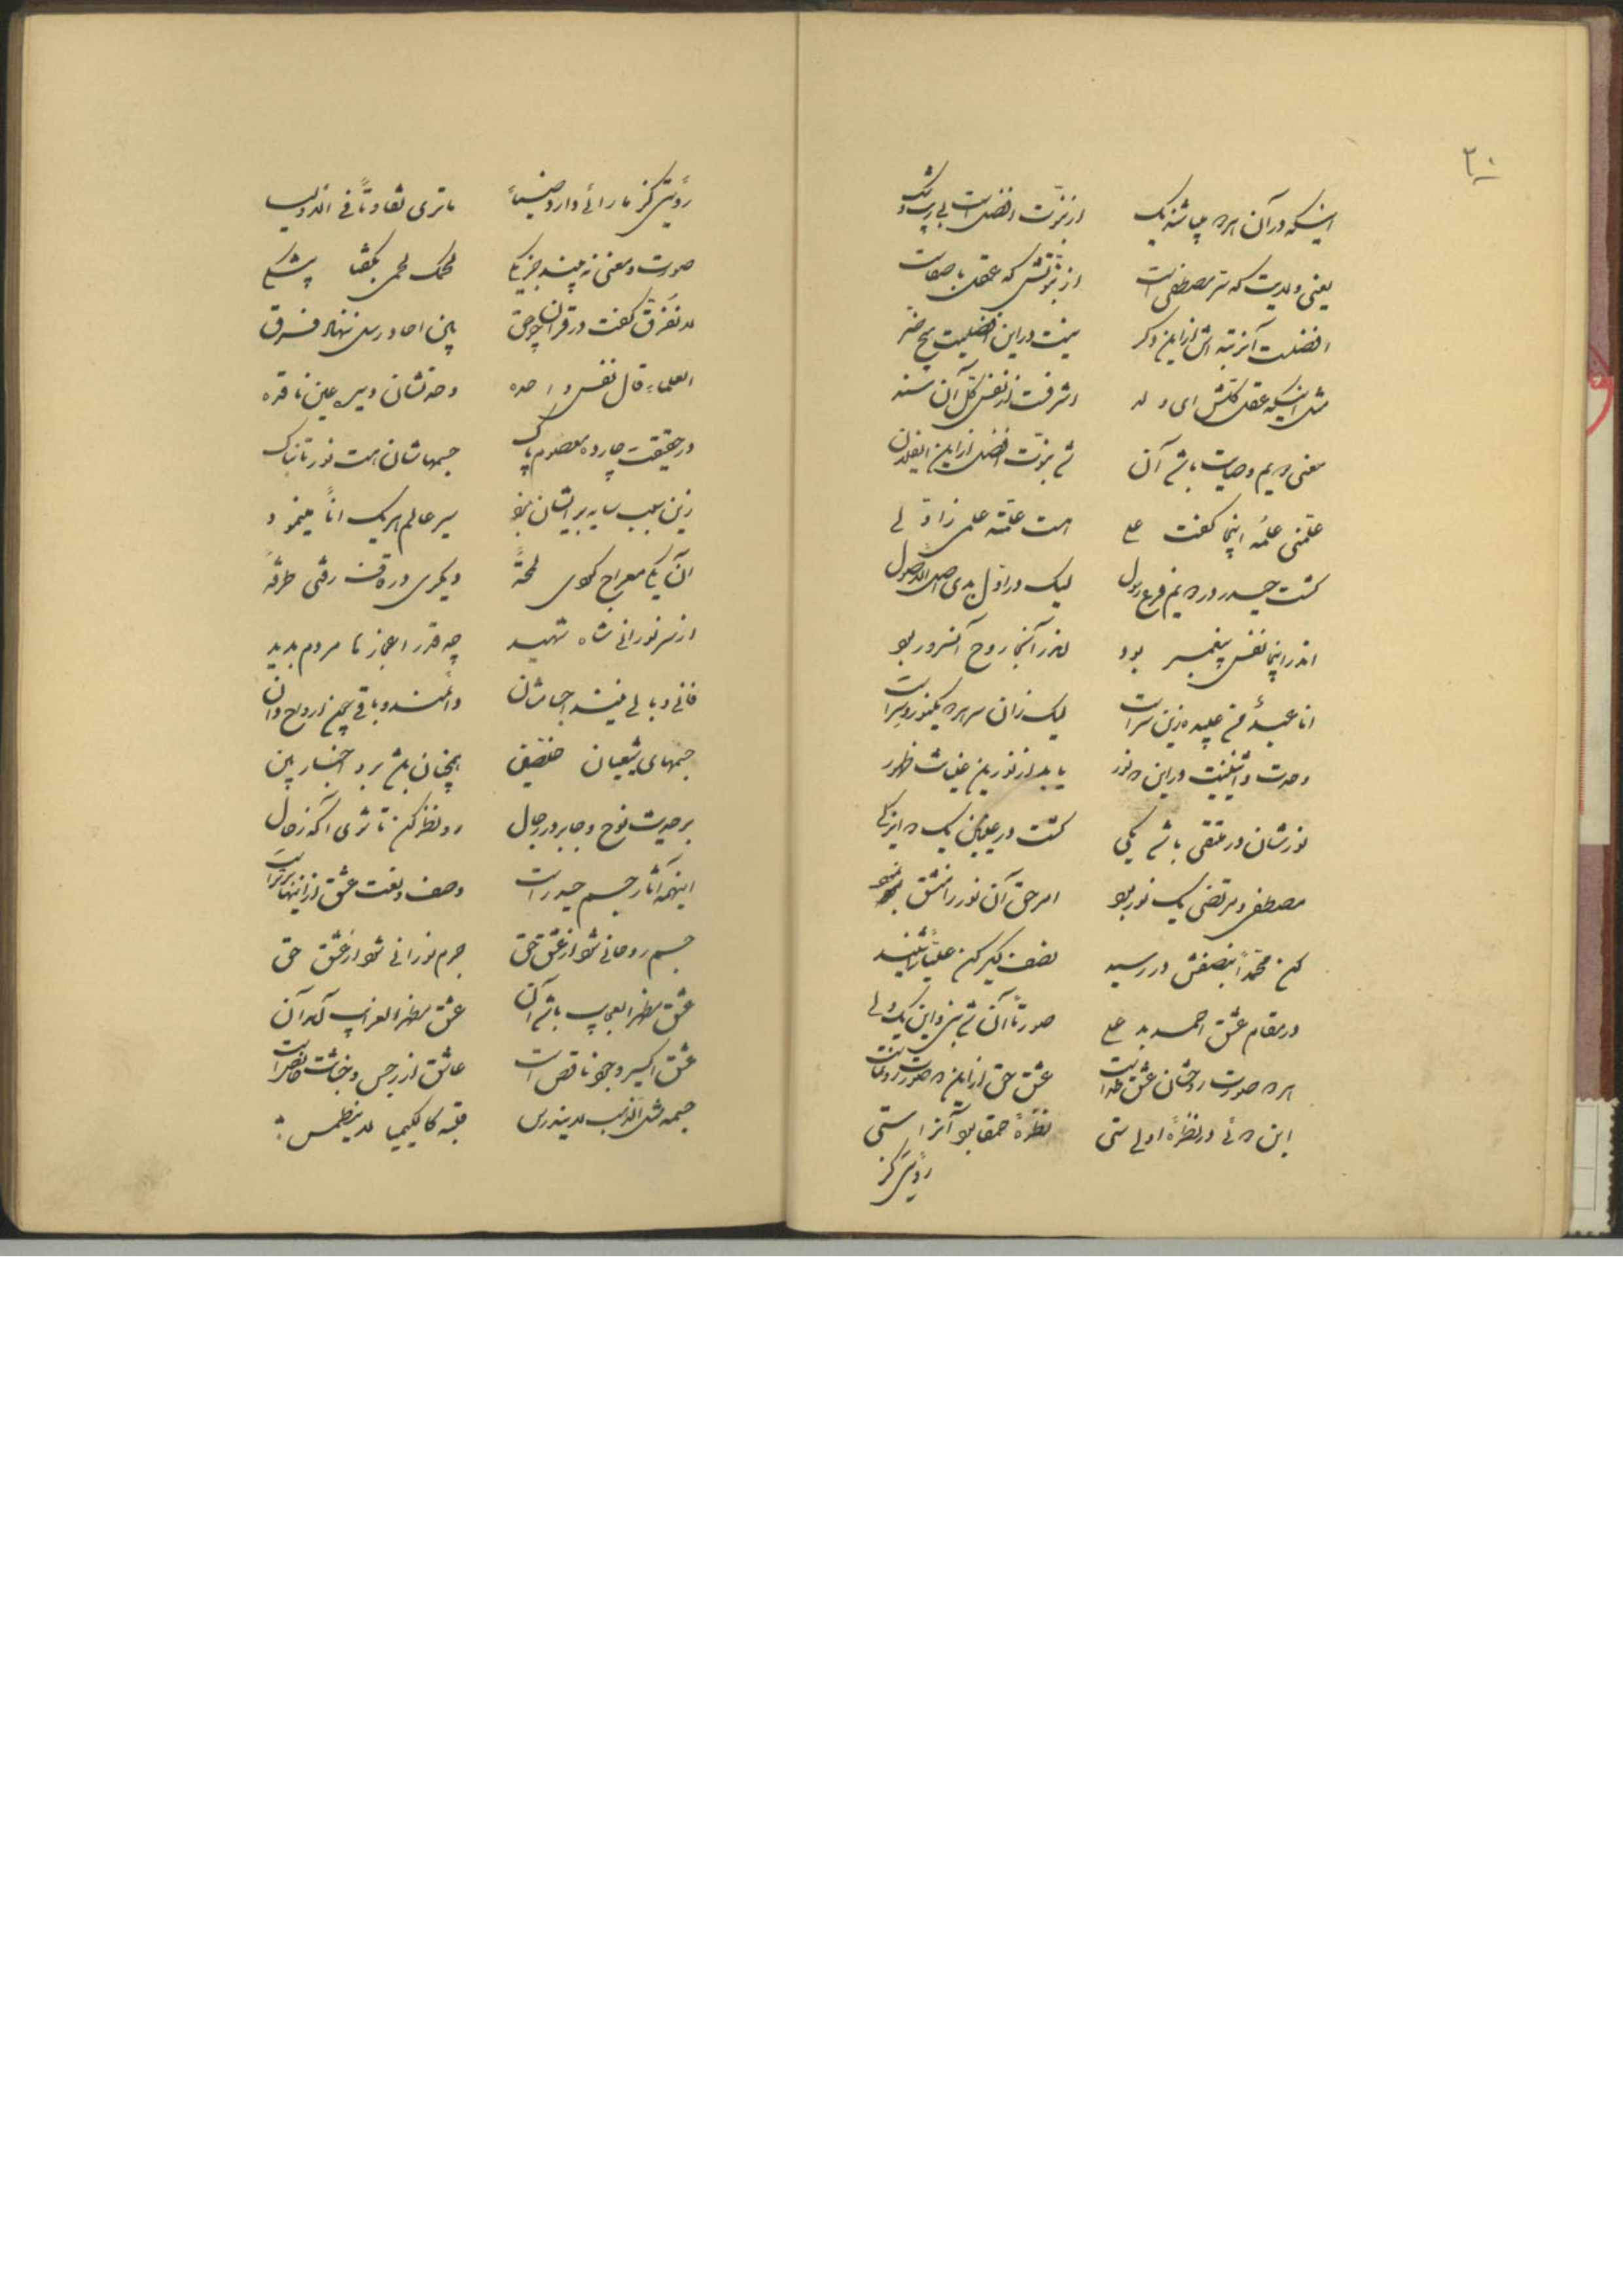 ۳۰
اینکه در آن هر دو میباشند یک از نبوّت افضل است بی ریب و شک
یعنی ولایت که سرّ مصطفی است از نبوّتش که عقل با صفاست
افضلیت آنرتبه اش از این دگر نیست در این افضلیت هیچ ضر
مثل اینکه عقل کلّش ای ولد اشرفست از نفس کلّ آن سند
معنی دویم وصایت باشد آن شد نبوّت افضل از این ایفلان
علّمنی علمه اینجا گفت علی هست علّمته علمی زاوّلی
گشت حیدر در دویم فرع رسول لیک در اوّل بدی اصل الاصول
اندر اینجا نفس پیغمبر بود اندر آنجا روح آنسرور بود
انا عبدٌ من عبیده زین سر است لیک زان سر هر دو یکنور و سر است
وحدت و اثنینیت در این دو نور یابد از نور این غیابت ظهور
نورشان در متّقی باشد یکی گشت در علیین یک دو ایزکی
مصطفی و مرتضی یک نور بود امر حق آن نور را نشق نمود
کن محمّداً بنصفش در رسید نصف دیگر کن علیّاً را شنید
در مقام عشق احمد بد علی صورتاً آن شد نبی و این یک ولی
هر دو صورت روحشان عشق خداست عشق حق از این دو صورت رونماست
این دوئی در نظرهٔ اولی ستی نظرهٔ حمقا بود آنراستی
رؤیتی کز
رؤیتی کز ما رائی دارد ضیاء ما تری تفاوتاً فی الاولیا
صورت و معنی نه بیند جز یکی لحمک لحمی بگفتا بیشکی
لا نفرّق گفت در قرآن چو حق بین احاد رسل ننهاد فرق
العلماء قال نفس واحده وحدتشان دیده عین ناقده
در حقیقت چارده معصوم پاک جسمهاشان هست نور تابناک
زین سبب سایه بر ایشان نبود سیر عالم هر یک اناً مینمود
آن یکی معراج کردی لمحةً دیگری در قاف رفتی طرفةً
از سر نورانی شاه شهید چه قدر اعجازها مردم بدید
فانی و بالی نیند اجسامشان دائمند و باقی همچون ارواح دان
جسمهای شیعیان همچنان باشد برو اخبار بین
بر حدیث نوح و جابر در رجال رو نظر کن تا شوی آگه ز حال
اینهمه آثار جسم حیدر است وصف و نعت عشق از اینها برتر است
جسم روحانی شود از عشق حق جرم نورانی شود از عشق حق
عشق مظهر العجایب باشد آن عشق مظهر الغرایب آمد آن
عشق اکسیر وجود ناقص است عاشق از رجس و خباثت خالص است
جسمه مثل الذهب لا یندرس قلبه کالکیمیا لا ینطمس